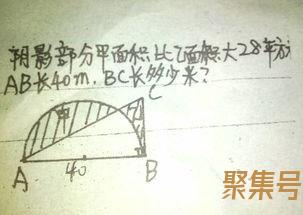 阴影部分甲面积比乙面积大28平方
AB长40m.BC长多少米?
C
甲
乙
A 40 B
聚集号